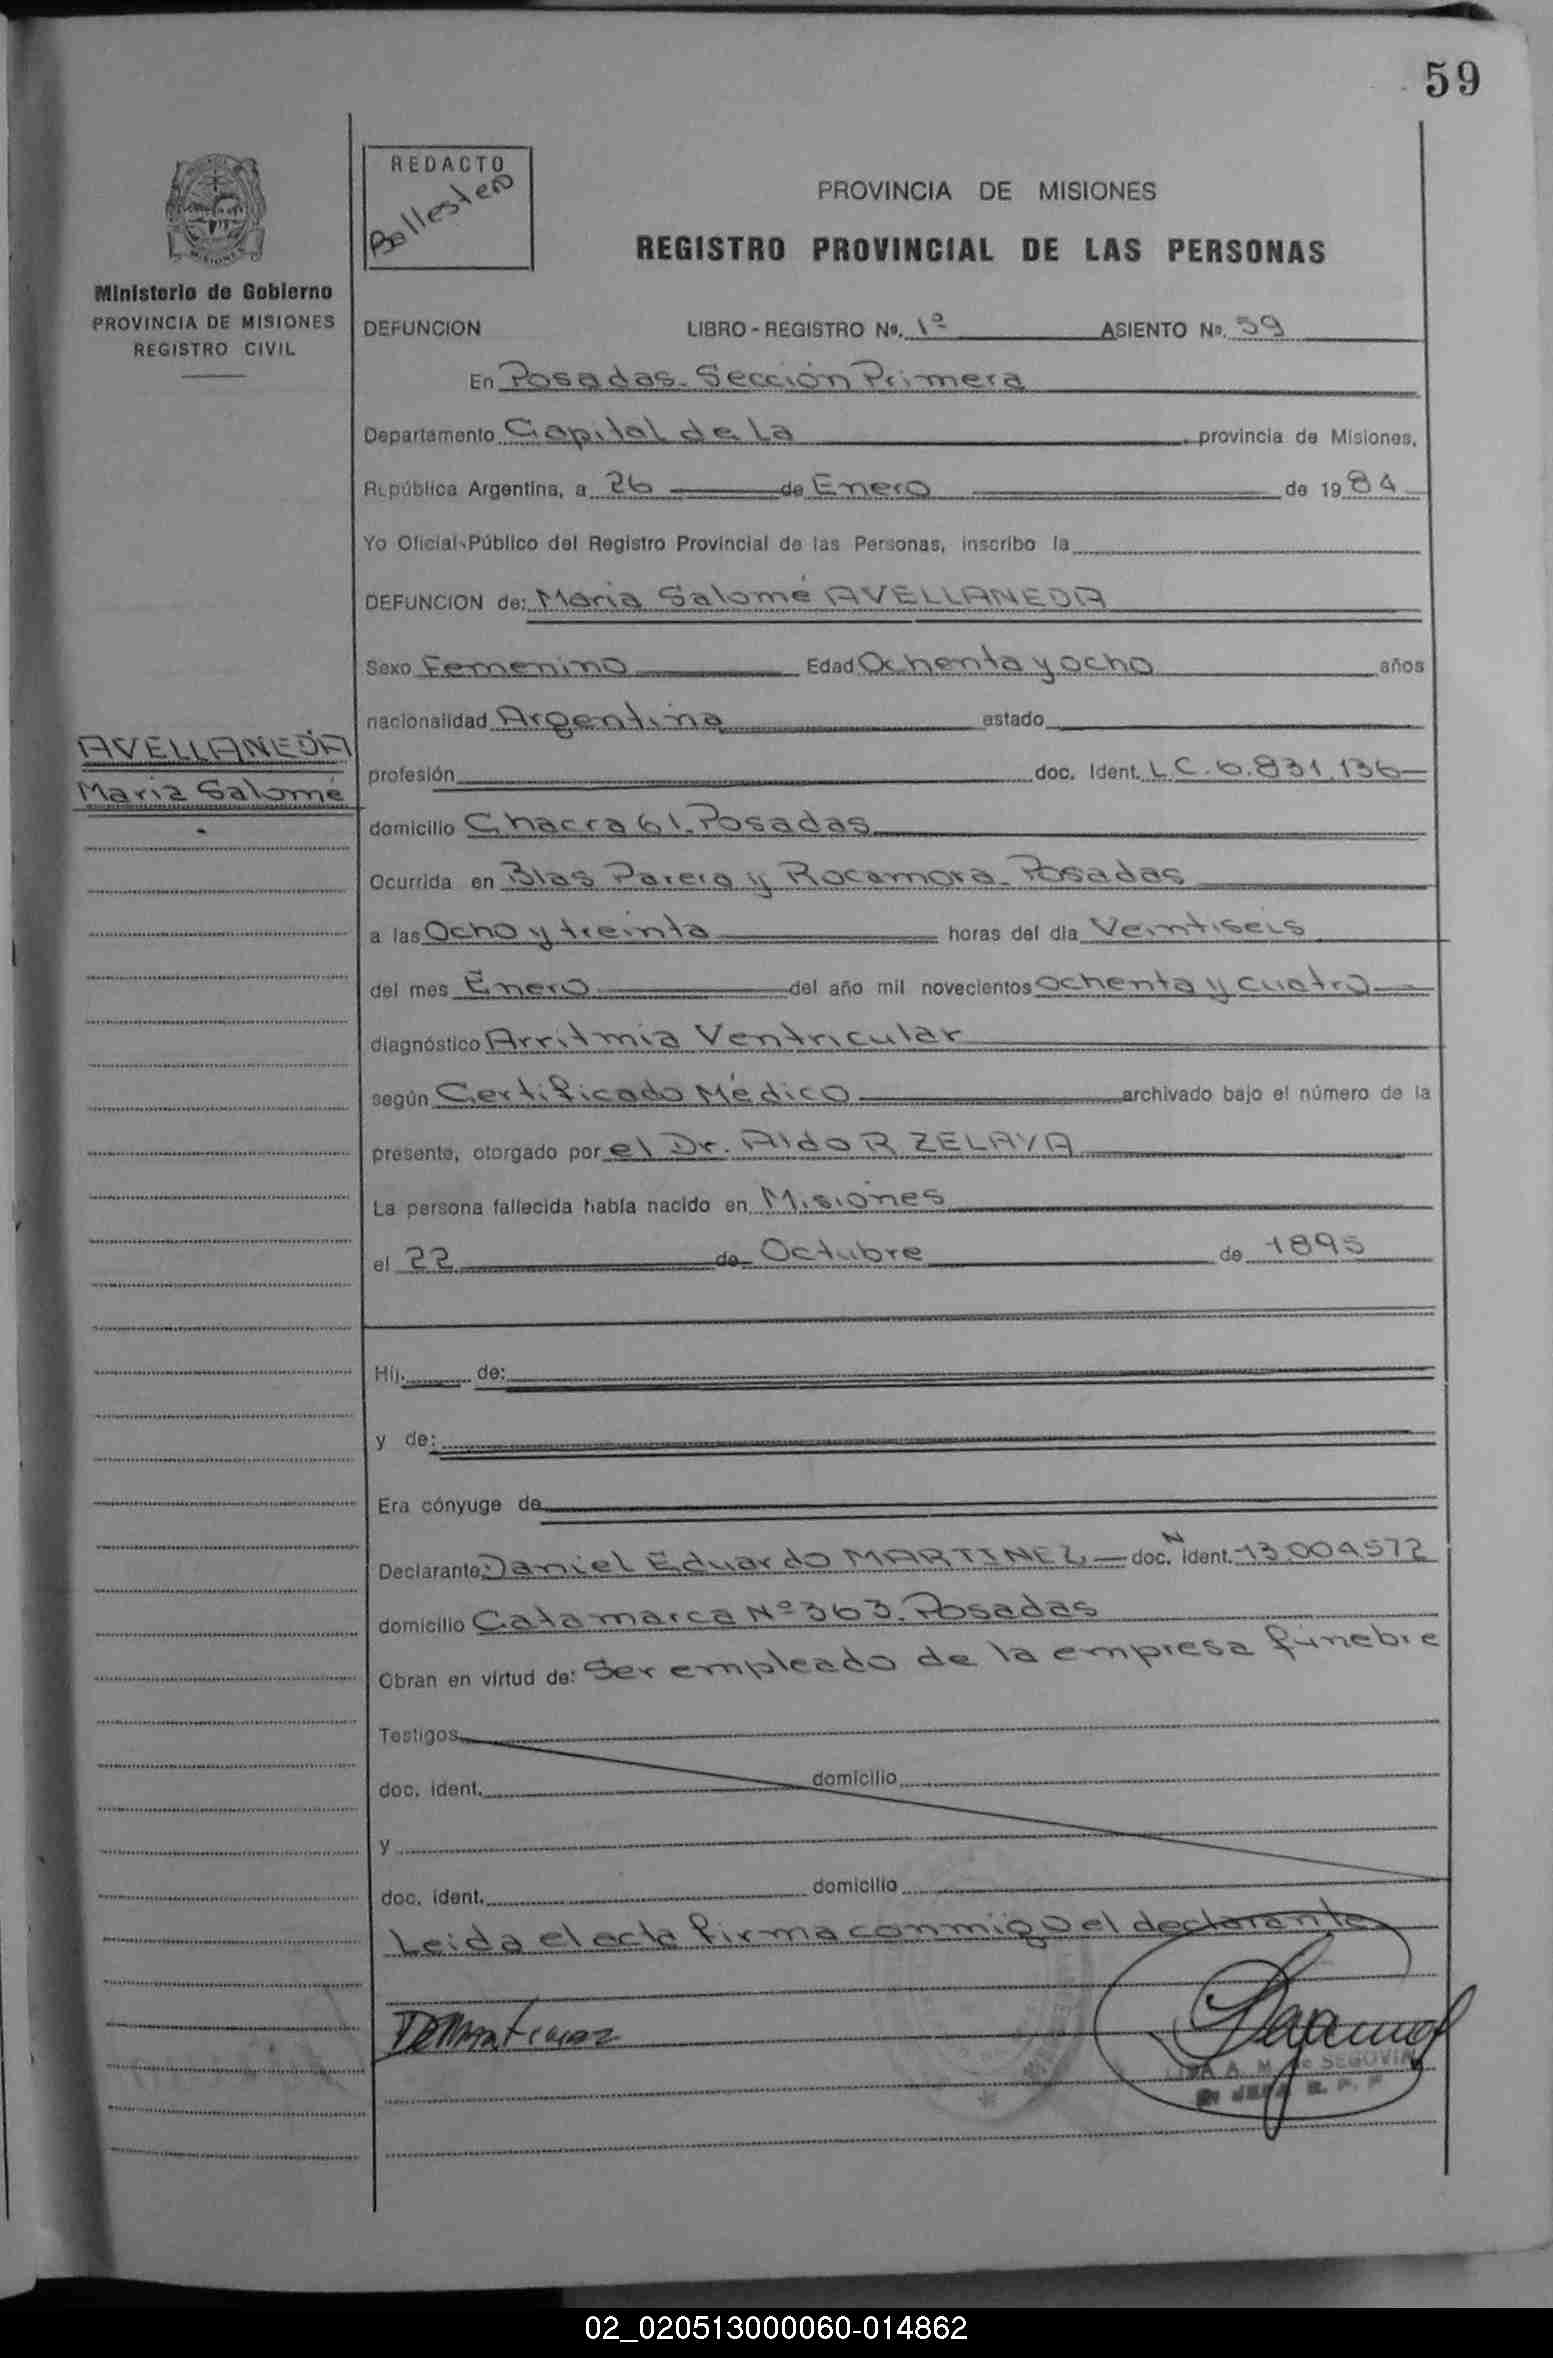 59
REDACTO
Ballestero
PROVINCIA DE MISIONES
REGISTRO PROVINCIAL DE LAS PERSONAS
MISIONES
Ministerio de Gobierno
PROVINCIA DE MISIONES
REGISTRO CIVIL
DEFUNCION LIBRO - REGISTRO Nº. 1º ASIENTO Nº. 59
En Posadas. Sección Primera
Departamento Capital de la , provincia de Misiones,
República Argentina, a 26 de Enero de 1984
Yo Oficial Público del Registro Provincial de las Personas, inscribo la
DEFUNCION de: Maria Salomé AVELLANEDA
Sexo Femenino Edad Ochenta y ocho años
nacionalidad Argentina estado
AVELLANEDA
Maria Salomé
profesión doc. Ident. L.C. 6.831.136
domicilio Chacra 61. Posadas
Ocurrida en Blas Parera y Rocamora. Posadas
a las Ocho y treinta horas del día Veintiseis
del mes Enero del año mil novecientos ochenta y cuatro
diagnóstico Arritmia Ventricular
según Certificado Médico archivado bajo el número de la
presente, otorgado por el Dr. Aldo R ZELAYA
La persona fallecida había nacido en Misiones
el 22 de Octubre de 1895
Hij. de:
y de:
Era cónyuge de
Declarante: Daniel Eduardo MARTINEZ doc. N ident. 13.004.572
domicilio Catamarca Nº 363. Posadas
Obran en virtud de: Ser empleado de la empresa fúnebre
Testigos
doc. ident. domicilio
y
doc. ident. domicilio
Leida el acta firma conmigo el declarante
DEMartinez
A. M. de SEGOVIA
02_020513000060-014862